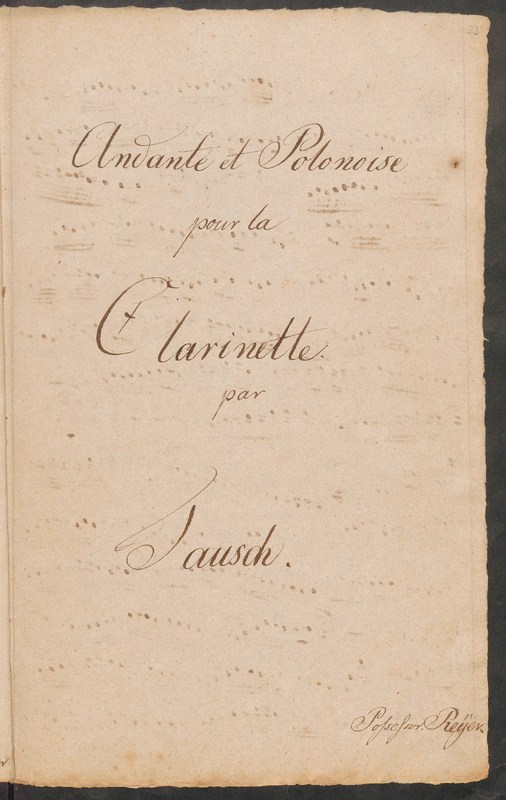 Andante et Polonoise
pour la
Clarinette.
par
Tausch.
Possessor. Reÿer.